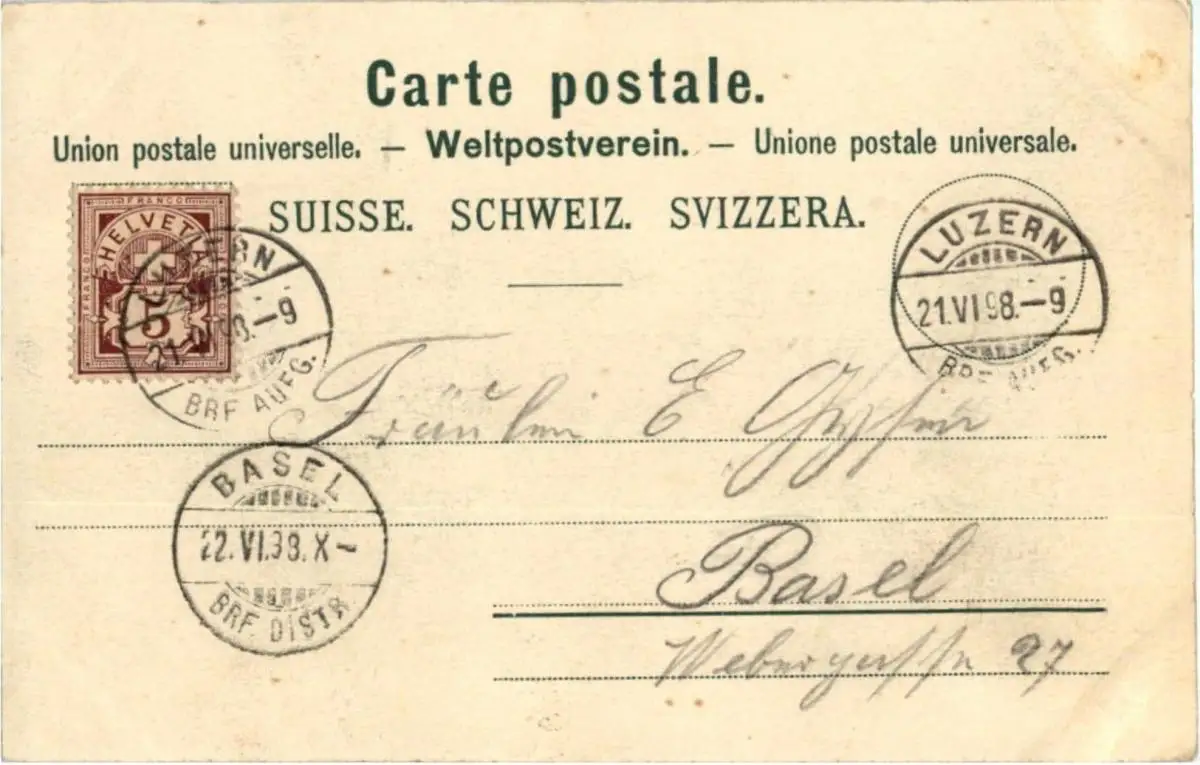 Carte postale.
Union postale universelle. — Weltpostverein. — Unione postale universale.
SUISSE. SCHWEIZ. SVIZZERA.
FRANCO
HELVETIA
FRANCO
5
LUZERN
21.VI.98.–9
BRF. AUFG.
LUZERN
21.VI.98.–9
BRF. AUFG.
Fräulein E
BASEL
22.VI.98.X–
BRF. DISTR.
Basel
Webergasse 27